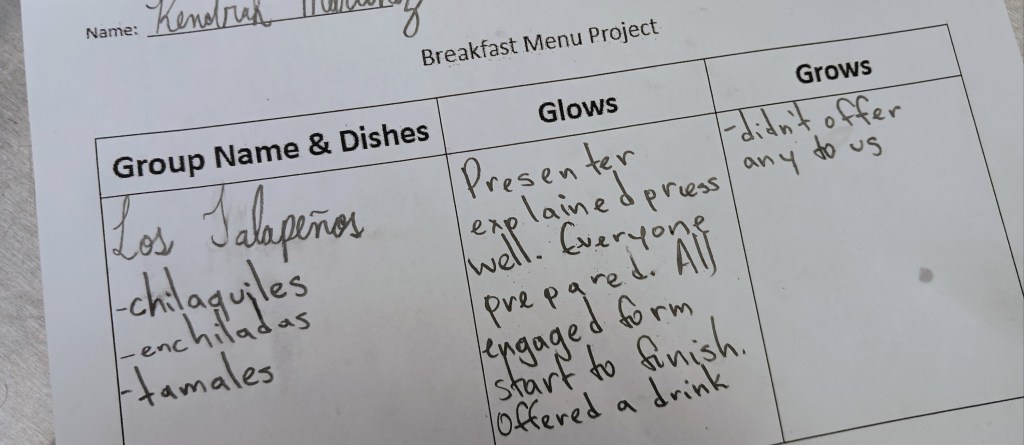 Name: Kendruk
Breakfast Menu Project
Group Name & Dishes
Los Jalapeños
-chilaquiles
-enchiladas
-tamales
Glows
Presenter
explained process
well. Everyone
prepared. All
engaged form
start to finish.
Offered a drink
Grows
-didn't offer
any to us